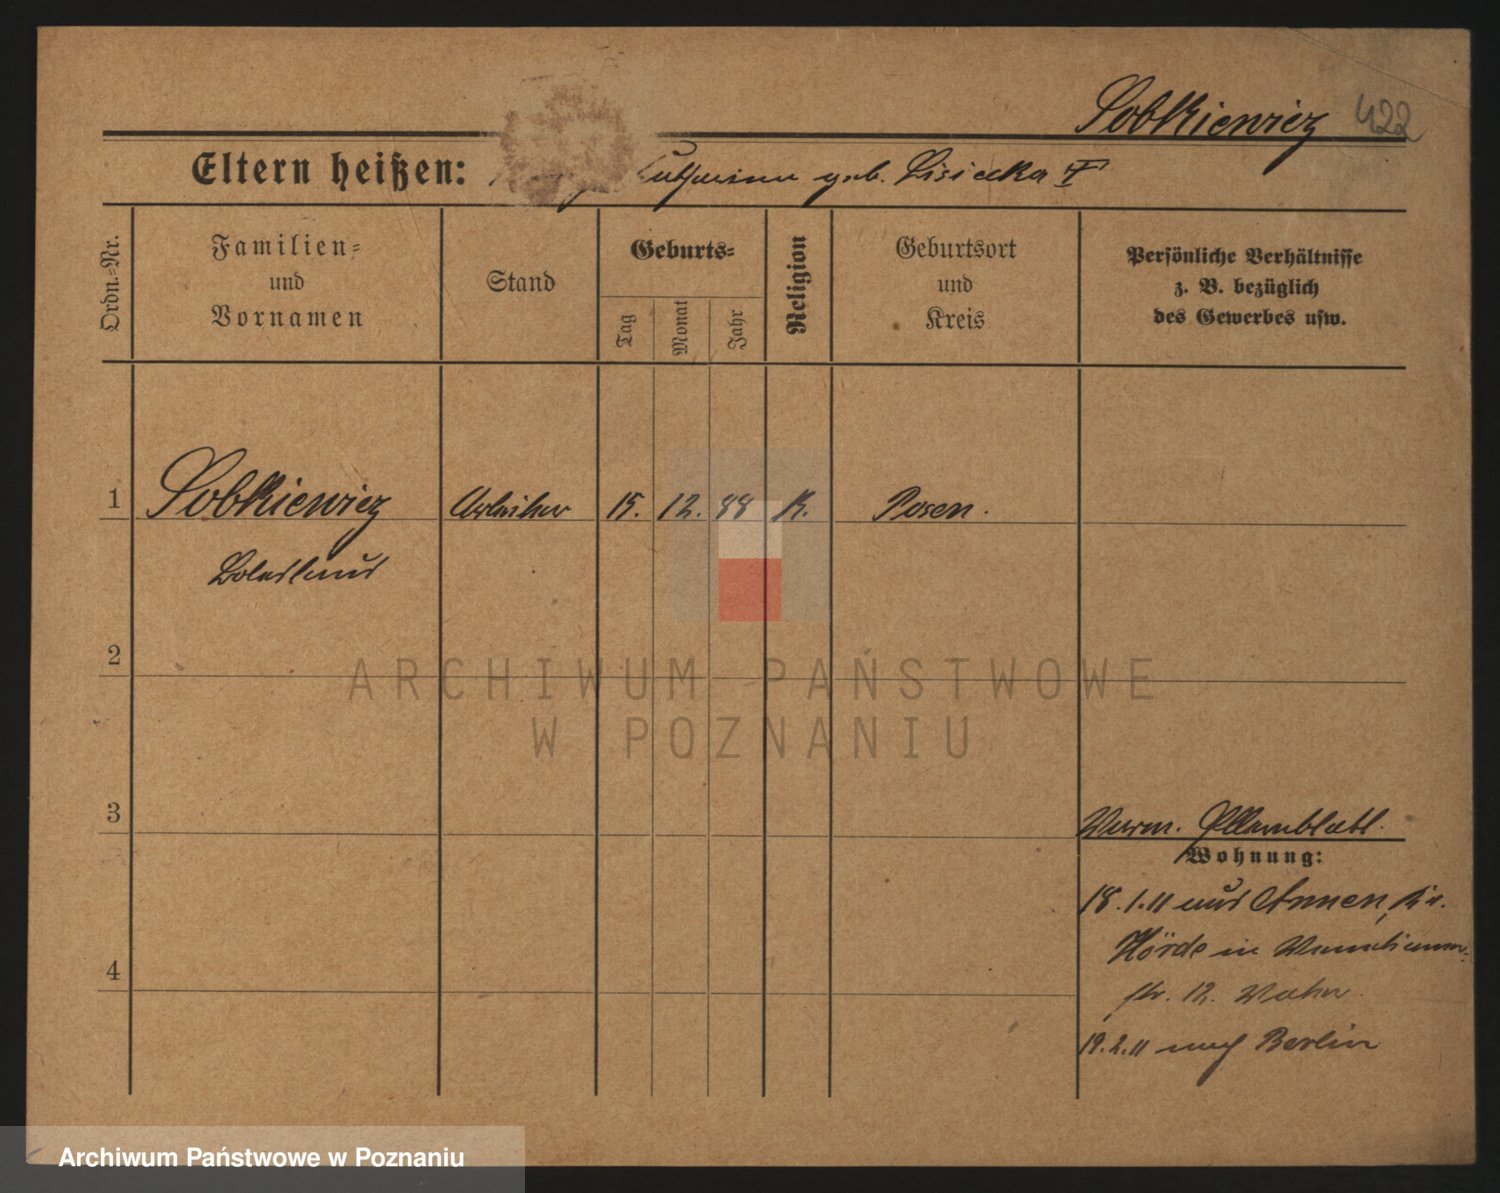 Sobkiewicz 422
Eltern heißen: geb. Lisiecka
Ordn.=Nr.
Familien=
und
Vornamen
Stand
Geburts=
Tag
Monat
Jahr
Religion
Geburtsort
und
Kreis
Persönliche Verhältnisse
z. B. bezüglich
des Gewerbes usw.
1 Sobkiewicz Arbeiter 15. 12. 88 K. Posen.
Boleslaus
2
3
4
Verm. Elternblatt.
Wohnung:
18.1.11 aus Annen, Kr.
Hörde in
str. 12. Vater
19.2.11 nach Berlin
ARCHIWUM PAŃSTWOWE
W POZNANIU
Archiwum Państwowe w Poznaniu